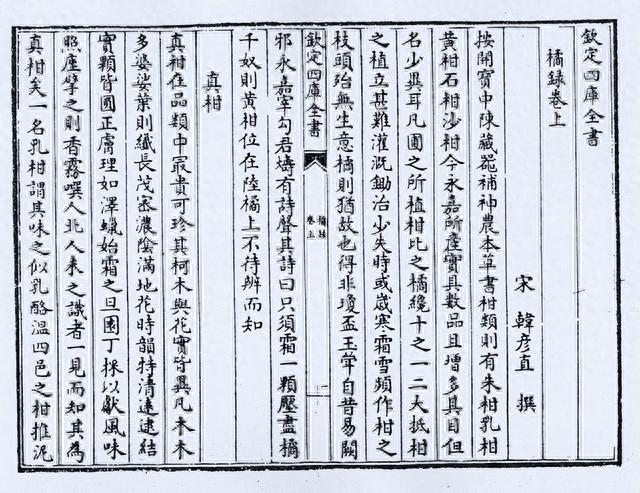 欽定四庫全書
橘録卷上
宋 韓彦直 撰
按開寳中陳藏噐補神農本草書柑類則有朱柑乳柑
黄柑石柑沙柑今永嘉所産實具數品且増多其目但
名少異耳凡圃之所植柑比之橘纔十之一二大抵柑
之植立甚難灌溉鋤治少失時或嵗寒霜雪頻作柑之
枝頭殆無生意橘則猶故也得非瓊盃玉斝自昔易闕
邪永嘉宰勾君燽有詩聲其詩曰只須霜一顆壓盡橘
千奴則黄柑位在陸橘上不待辨而知
真柑
真柑在品類中最貴可珍其柯木與花實皆異凡木木
多婆娑葉則纎長茂宻濃隂滿地花時韻特清逺逮結
實顆皆圓正膚理如澤蠟始霜之旦園丁採以獻風味
照座擘之則香霧噀人北人未之識者一見而知其為
真柑矣一名乳柑謂其味之似乳酪温四邑之柑推泥
欽定四庫全書
橘録
卷上
一